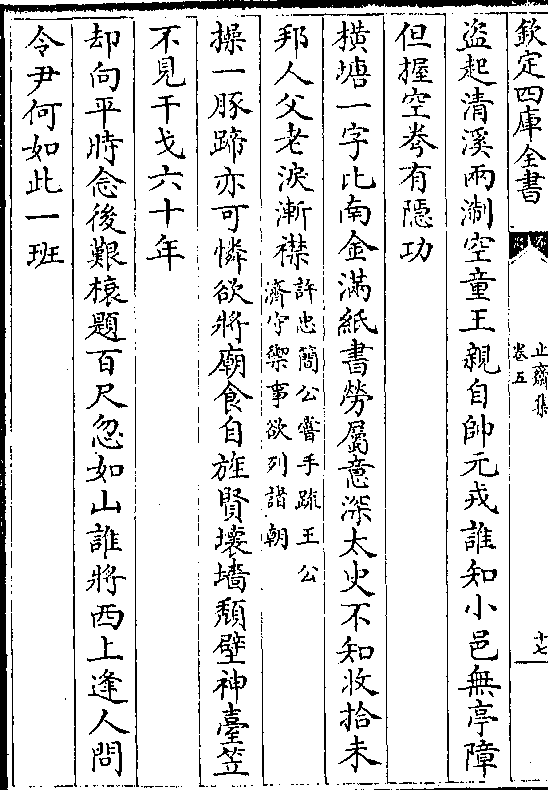 欽定四庫全書
止齋集
卷五
十七
盜起清溪兩淛空童王親自帥元戎誰知小邑無亭障
但握空拳有隱功
橫塘一字比南金滿紙書勞屬意深太史不知收拾未
邦人父老淚漸襟許忠簡公嘗手疏王公
濟守禦事欲列諸朝
操一豚蹄亦可憐欲將廟食自旌賢壞墻頹壁神臺笠
不見干戈六十年
却向平時念後艱榱題百尺忽如山誰將西上逢人問
令尹何如此一班